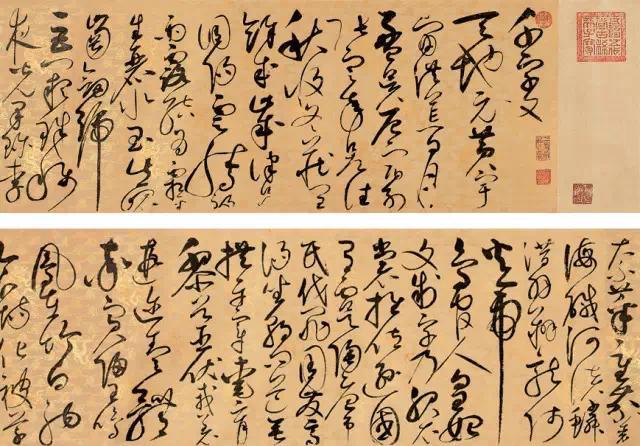 千字文
天地元黃宇
宙洪荒日月
盈昃辰宿列
張寒來暑往
秋收冬藏閏
餘成歲律呂
調陽雲騰致
雨露結為霜
生麗水玉出崑
岡劍號
巨闕珠稱
夜光果珍李
柰菜重芥薑
海鹹河淡鱗
潛羽翔龍師
火帝
鳥官人皇始
制文字乃服衣
裳推位遜國
有虞陶唐弔
民伐罪周發商
湯坐朝問道垂
拱平章愛育
黎首臣伏戎羌
遐邇壹體
率賓歸王鳴
鳳在竹白駒
食場化被草